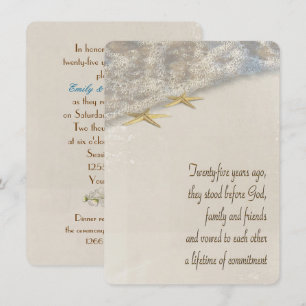 In honor
twenty-five ye
pl
Emily &
as they r
on Saturda
Two thou
at six o'c
Swa
125
You
Dinner re
the ceremony
1266
Twenty-five years ago,
they stood before God,
family and friends
and vowed to each other
a lifetime of commitment